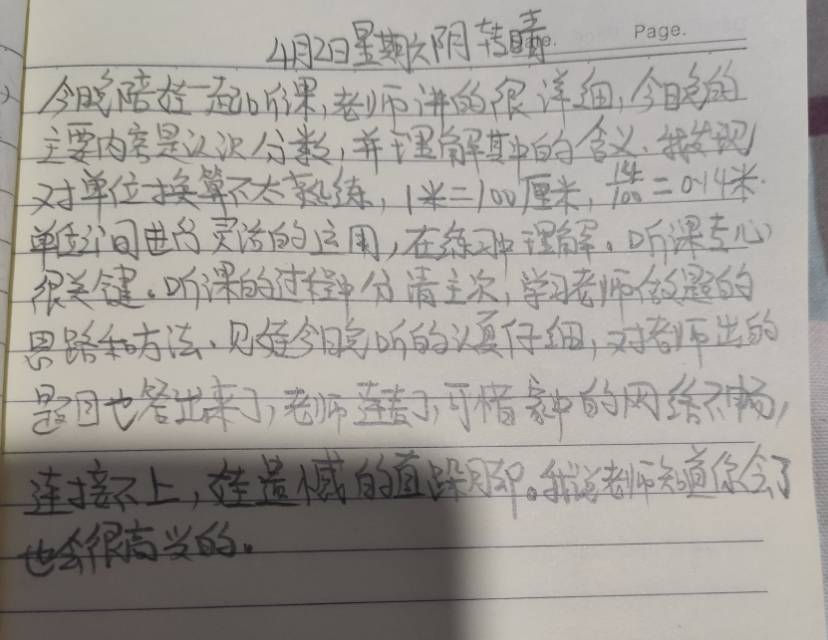 Page.
4月2日星期六阴转晴
今晚陪娃一起听课,老师讲的很详细,今晚的
主要内容是认识分数,并理解其中的含义.我发现
对单位换算不太熟练,1米=100厘米,14/100=0.14米.
单位之间进行灵活的运用,在练习中理解。听课专心
很关键。听课的过程中分清主次,学习老师做题的
思路和方法、见娃今晚听的认真仔细,对老师出的
题目也答出来了,老师连麦了,可惜家中的网络不畅,
连接不上,娃遗憾的直跺脚。我说老师知道你会了
也会很高兴的。